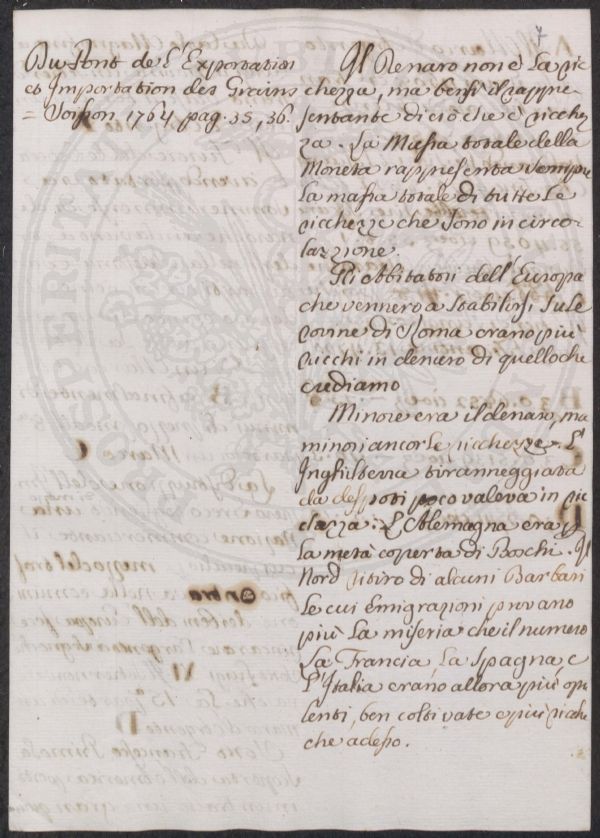 7
Du Pont de l'Exportation
et Importation des Grains
= Soisson 1764 pag. 35, 36.
Il Denaro non è la ric
chezza, ma bensì il rappre
sentante di ciò che è ricchez
za. La Massa totale della
Moneta rappresenta sempre
la massa totale di tutte le
ricchezze che sono in circo-
lazzione.
Gli abbitatori dell'Europa
che vennero a stabilirsi sule
rovine di Roma erano più
ricchi in denaro di quello che
crediamo
Minore era il denaro, ma
minori ancor le ricchezze. L'
Inghilterra tiranneggiata
da despoti poco valeva in ric
chezza. L'Alemagna era p
la metà coperta di Boschi. Il
Nord ritiro di alcuni Barbari
le cui emigrazioni provano
più la miseria che il numero
La Francia, la Spagna, e
l'Italia erano allora più opu
lenti, ben coltivate e più ricche
che adesso.
PROSPERITATI